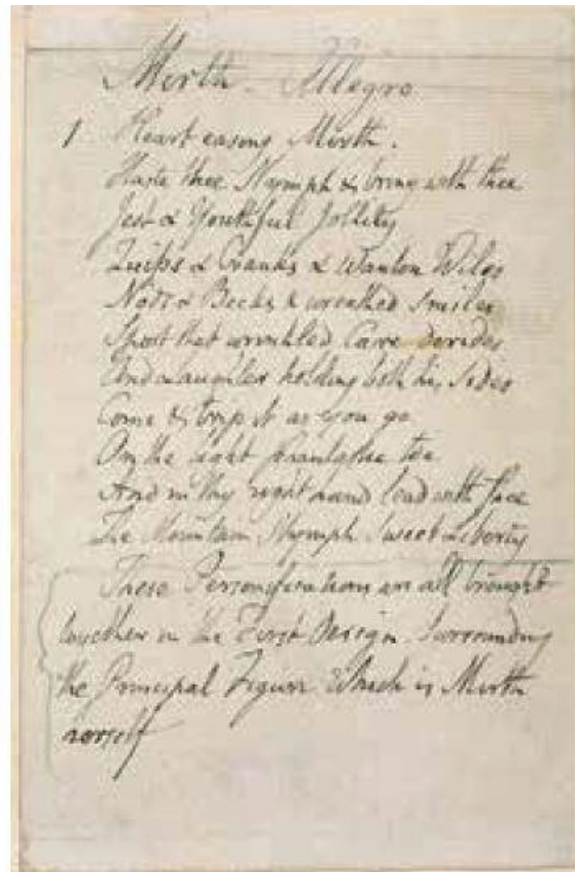 Mirth. Allegro
1 Heart easing Mirth.
Haste thee Nymph & bring with thee
Jest & Youthful Jollity
Quips & Cranks & Wanton Wiles
Nods & Becks & wreathed Smiles
Sport that wrinkled Care derides
And Laughter holding both his Sides
Come & trip it as you go
On the light phantastic toe
And in thy right hand lead with thee
The Mountain Nymph Sweet Liberty
These Personifications are all brought
together in the First Design. Surrounding
the Principal Figure Which is Mirth
herself